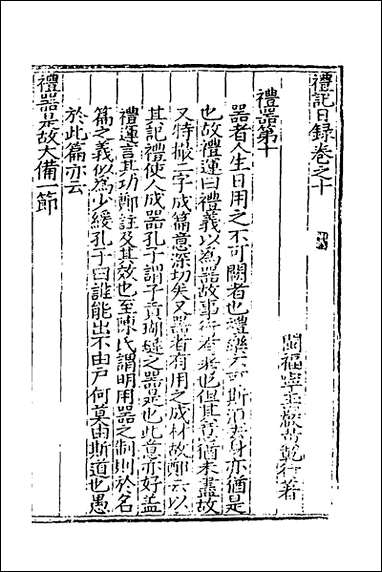 禮記日録卷之十
閩福寧 黃乾行著
禮器第十
器者人生日用之不可闕者也禮樂不可斯須去身亦猶是
也故禮運曰禮義以為器故事行有考也但其言猶未盡故
又特撮二字成篇意深切矣又器者有用之成材故鄭云以
其記禮使人成器孔子謂子貢瑚璉之器是也此意亦好蓋
禮運言其功鄭註及其效也至陳氏謂明用器之制則於名
篇之義似為少緩孔子曰誰能出不由戶何莫由斯道也愚
於此篇亦云
禮器是故大備一節